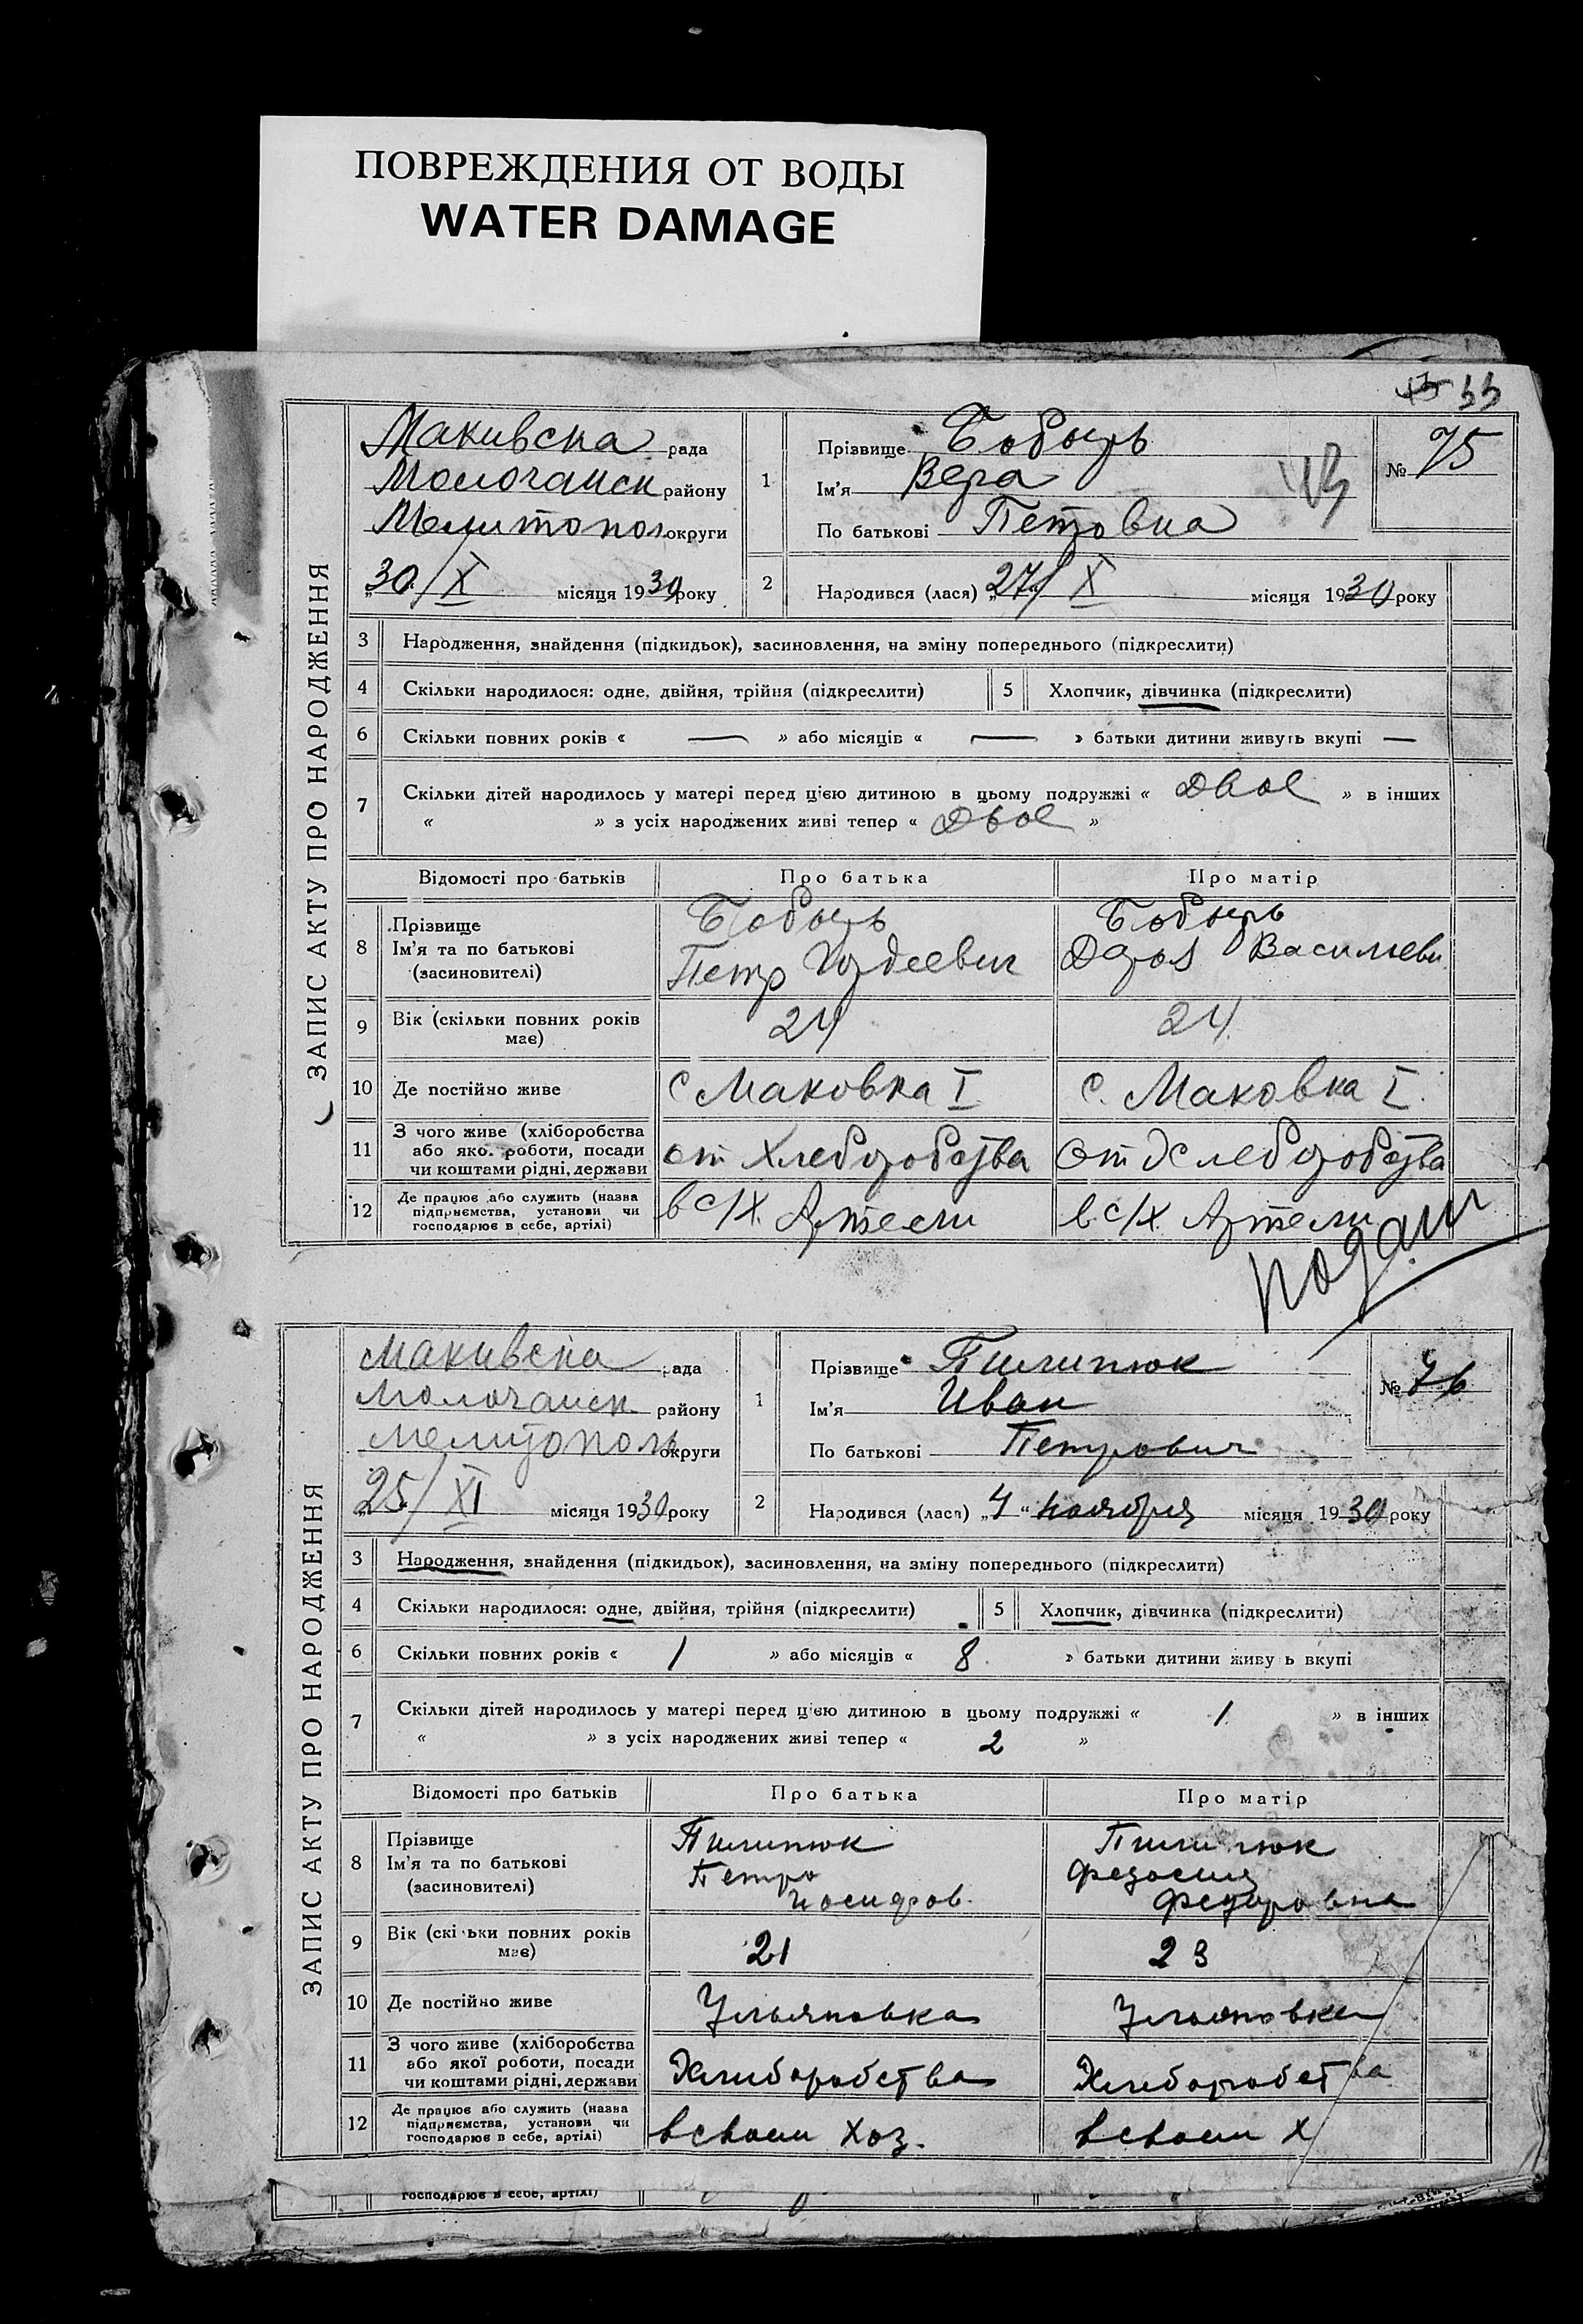 ПОВРЕЖДЕНИЯ ОТ ВОДЫ
WATER DAMAGE
33
ЗАПИС АКТУ ПРО НАРОДЖЕННЯ
Макивска рада
Молочанск району
Мелитопол. округи
„30/X місяця 1930 року
1
Прізвище Бобырь
Ім'я Вера
По батькові Петровна
№ 75
2
Народився (лася) „27/X місяця 1930 року
3 Народження, знайдення (підкидьок), засиновлення, на зміну попереднього (підкреслити)
4 Скільки народилося: одне, двійня, трійня (підкреслити) 5 Хлопчик, дівчинка (підкреслити)
6 Скільки повних років « — » або місяців « — » батьки дитини живуть вкупі —
7 Скільки дітей народилось у матері перед цією дитиною в цьому подружжі « двое » в інших
« » з усіх народжених живі тепер « двое »
Відомості про батьків Про батька Про матір
8 Прізвище
Ім'я та по батькові
(засиновителі)
Бобырь
Петр
Бобырь
Васильевн
9 Вік (скільки повних років
має)
24
24
10 Де постійно живе
с Маковка I
с. Маковка I.
11 З чого живе (хліборобства
або якої роботи, посади
чи коштами рідні, держави
от Хлеборобства
от Хлеборобства
12 Де працює або служить (назва
підприємства, установи чи
господарює в себе, артілі)
в с/х. Артели
в с/х. Артели
ЗАПИС АКТУ ПРО НАРОДЖЕННЯ
Макивска рада
Молочанск. району
Мелитополь округи
„25/XI місяця 1930 року
1
Прізвище Пилипюк
Ім'я Иван
По батькові Петрович
№ 76
2
Народився (лася) „4“ ноября місяця 1930 року
3 Народження, знайдення (підкидьок), засиновлення, на зміну попереднього (підкреслити)
4 Скільки народилося: одне, двійня, трійня (підкреслити) 5 Хлопчик, дівчинка (підкреслити)
6 Скільки повних років « 1 » або місяців « 8 » батьки дитини живу ь вкупі
7 Скільки дітей народилось у матері перед цією дитиною в цьому подружжі « 1. » в інших
« » з усіх народжених живі тепер « 2 »
Відомості про батьків Про батька Про матір
8 Прізвище
Ім'я та по батькові
(засиновителі)
Пилипюк
Петро
Иосифов.
Пилипюк
Федосия
Федоровна
9 Вік (скільки повних років
має)
21
23
10 Де постійно живе
Ульяновка
Ульяновка
11 З чого живе (хліборобства
або якої роботи, посади
чи коштами рідні, держави
Хлиборобства
Хлиборобства
12 Де працює або служить (назва
підприємства, установи чи
господарює в себе, артілі)
в своем хоз.
в своем х
господарює в себе, артілі)